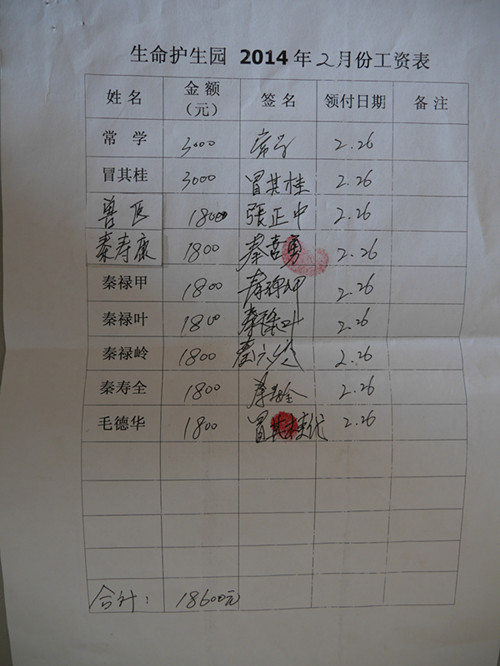 生命护生园 2014年2月份工资表
姓名 金额(元) 签名 领付日期 备注
常学 3000 常学 2.26
冒其桂 3000 冒其桂 2.26
兽医 1800 张正中 2.26
秦寿康 1800 秦喜勇 2.26
秦禄甲 1800 秦禄甲 2.26
秦禄叶 1800 秦禄叶 2.26
秦禄岭 1800 2.26
秦寿全 1800 2.26
毛德华 1800 冒其桂代 2.26
合计: 18600元